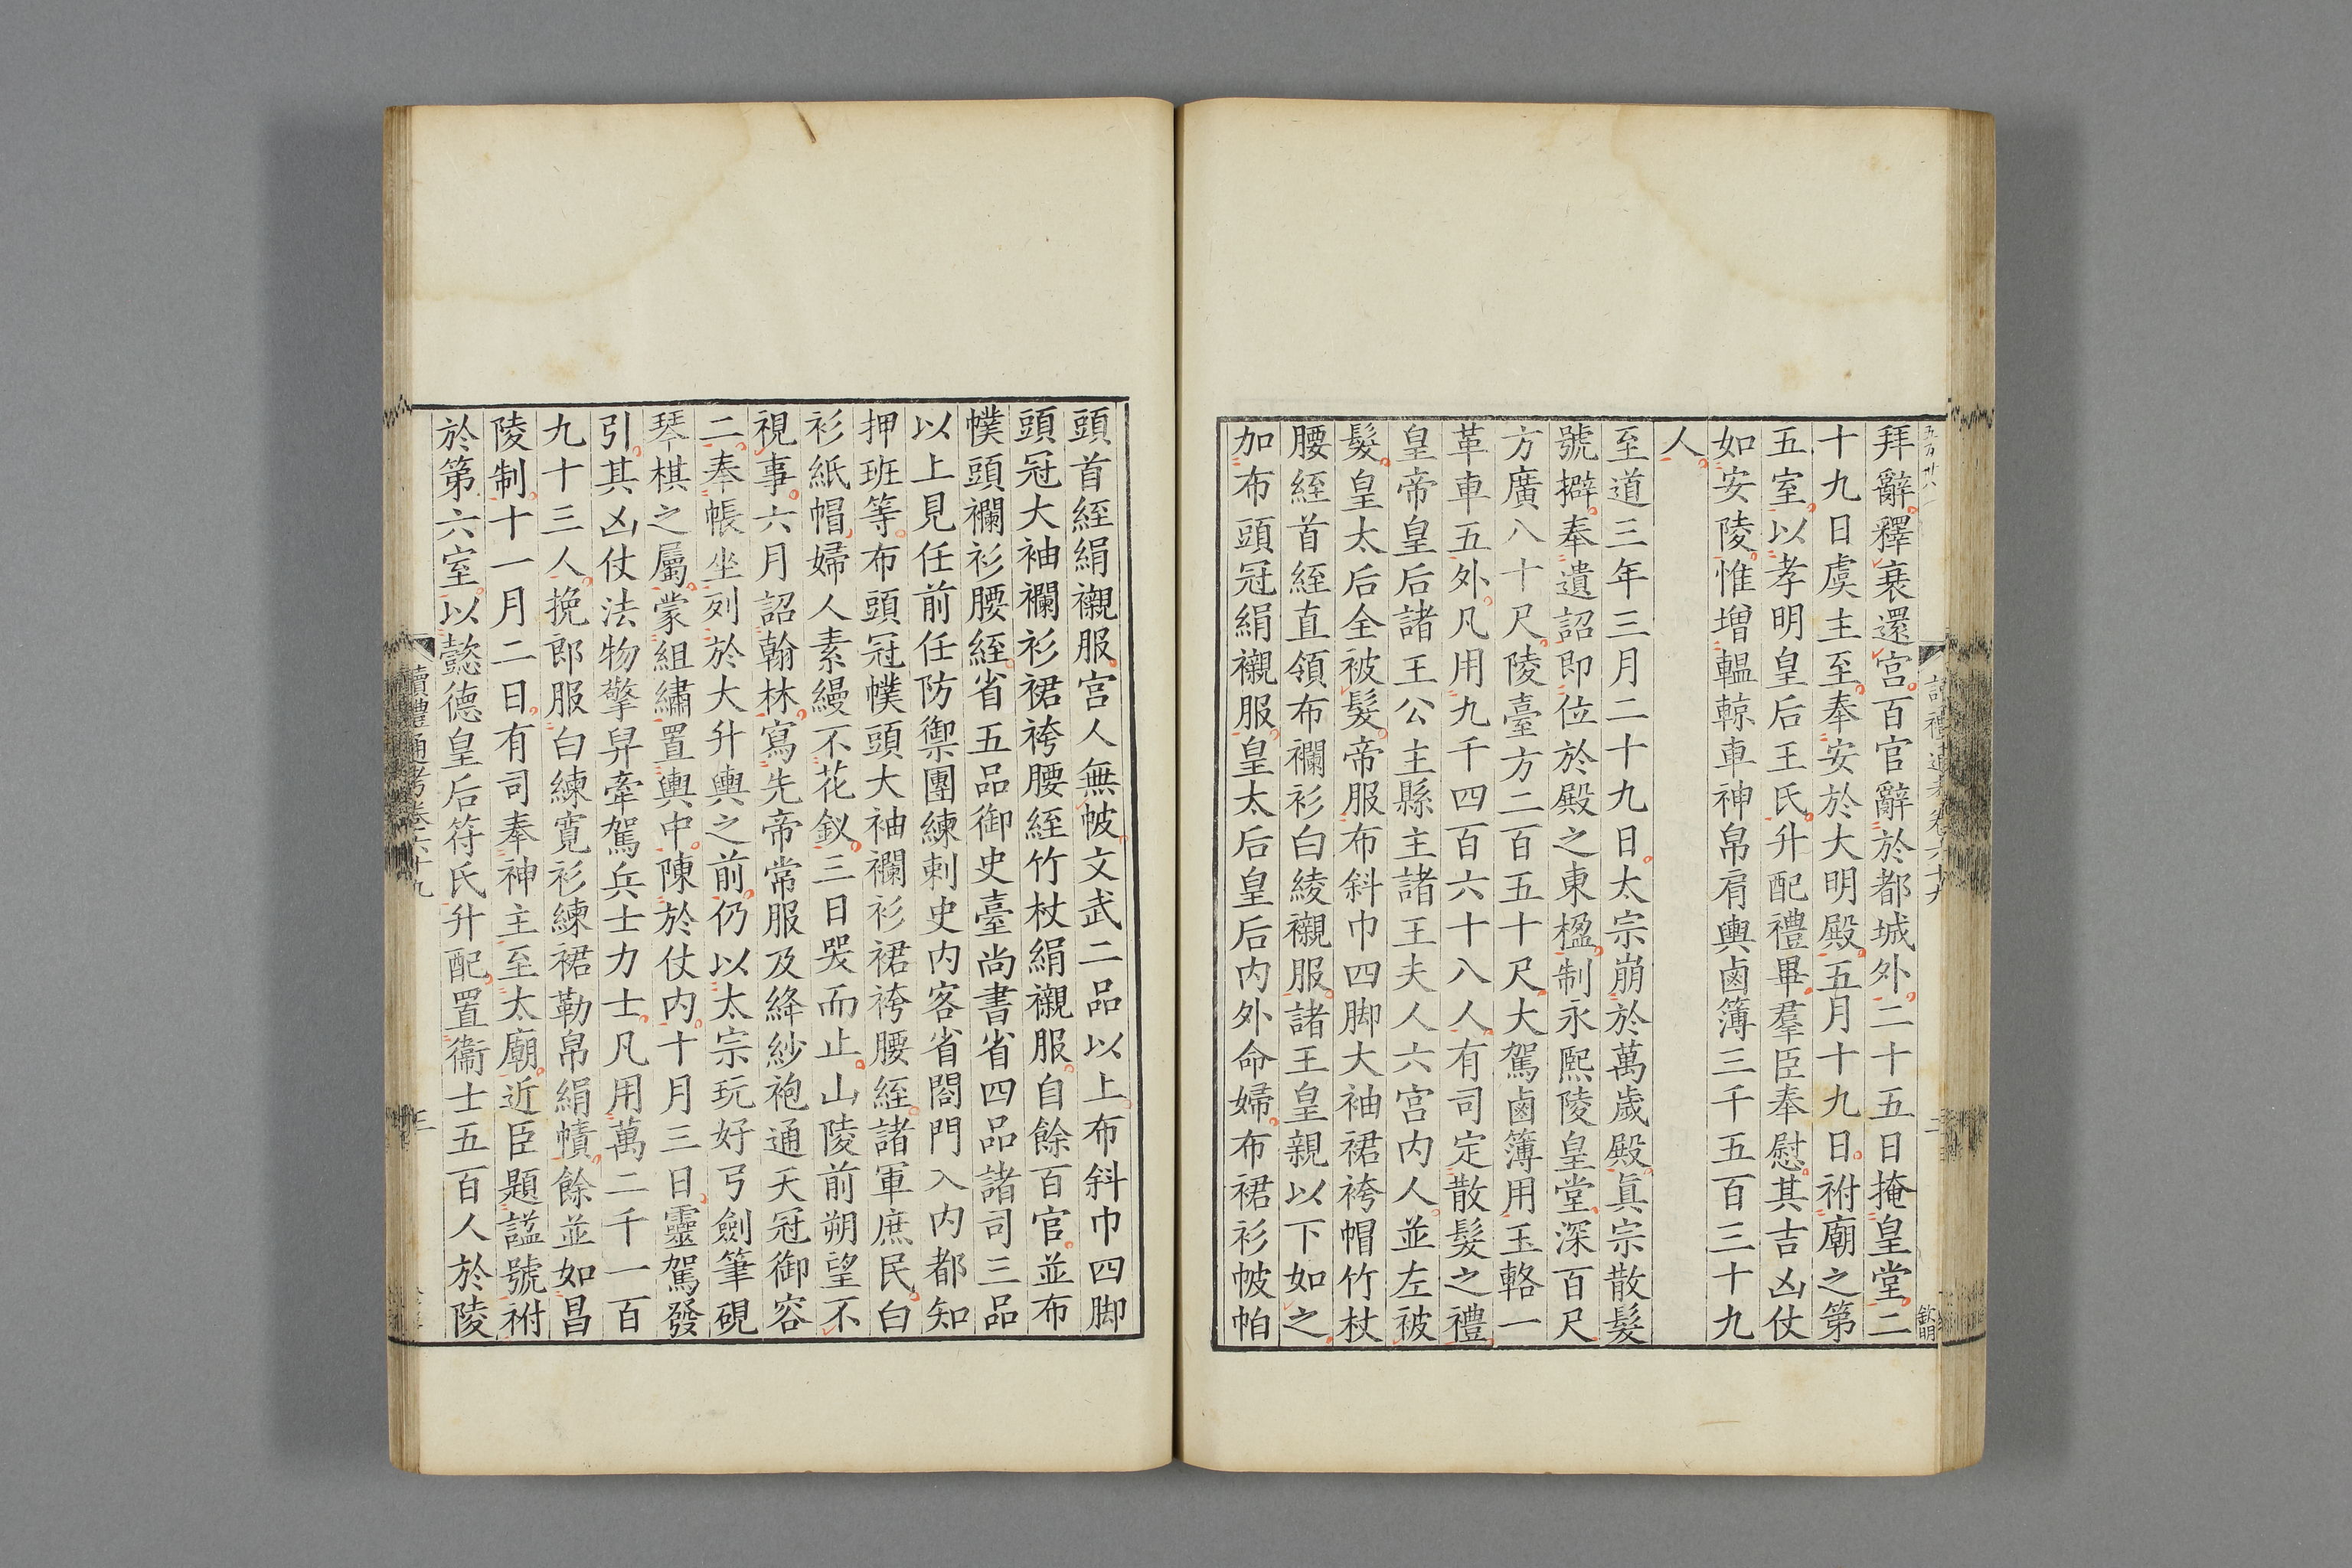 拜辭釋衰還宮百官辭於都城外二十五日掩皇堂二
十九日虞主至奉安於大明殿五月十九日祔廟之第
五室以孝明皇后王氏升配禮畢羣臣奉慰其吉凶仗
如安陵惟增轀輬車神帛肩輿鹵簿三千五百三十九
人
至道三年三月二十九日太宗崩於萬歲殿眞宗散髮
號擗奉遺詔即位於殿之東楹制永熙陵皇堂深百尺
方廣八十尺陵臺方二百五十尺大駕鹵簿用玉輅一
革車五外凡用九千四百六十八人有司定散髮之禮
皇帝皇后諸王公主縣主諸王夫人六宮内人並左被
髮皇太后全被髮帝服布斜巾四脚大袖裙袴帽竹杖
腰絰首絰直領布襴衫白綾襯服諸王皇親以下如之
加布頭冠絹襯服皇太后皇后内外命婦布裙衫帔帕
頭首絰絹襯服宮人無帔文武二品以上布斜巾四脚
頭冠大袖襴衫裙袴腰絰竹杖絹襯服自餘百官並布
幞頭襴衫腰絰省五品御史臺尚書省四品諸司三品
以上見任前任防禦團練刺史内客省閤門入内都知
押班等布頭冠幞頭大袖襴衫裙袴腰絰諸軍庶民白
衫紙帽婦人素縵不花釵三日哭而止山陵前朔望不
視事六月詔翰林寫先帝常服及絳紗袍通天冠御容
二奉帳坐列於大升輿之前仍以太宗玩好弓劍筆硯
琴棋之屬蒙組繡置輿中陳於仗内十月三日靈駕發
引其凶仗法物擎舁牽駕兵士力士凡用萬二千一百
九十三人挽郎服白練寬衫練裙勒帛絹幘餘並如昌
陵制十一月二日有司奉神主至太廟近臣題謚號祔
於第六室以懿德皇后符氏升配置衞士五百人於陵
讀禮通考卷六十九
三